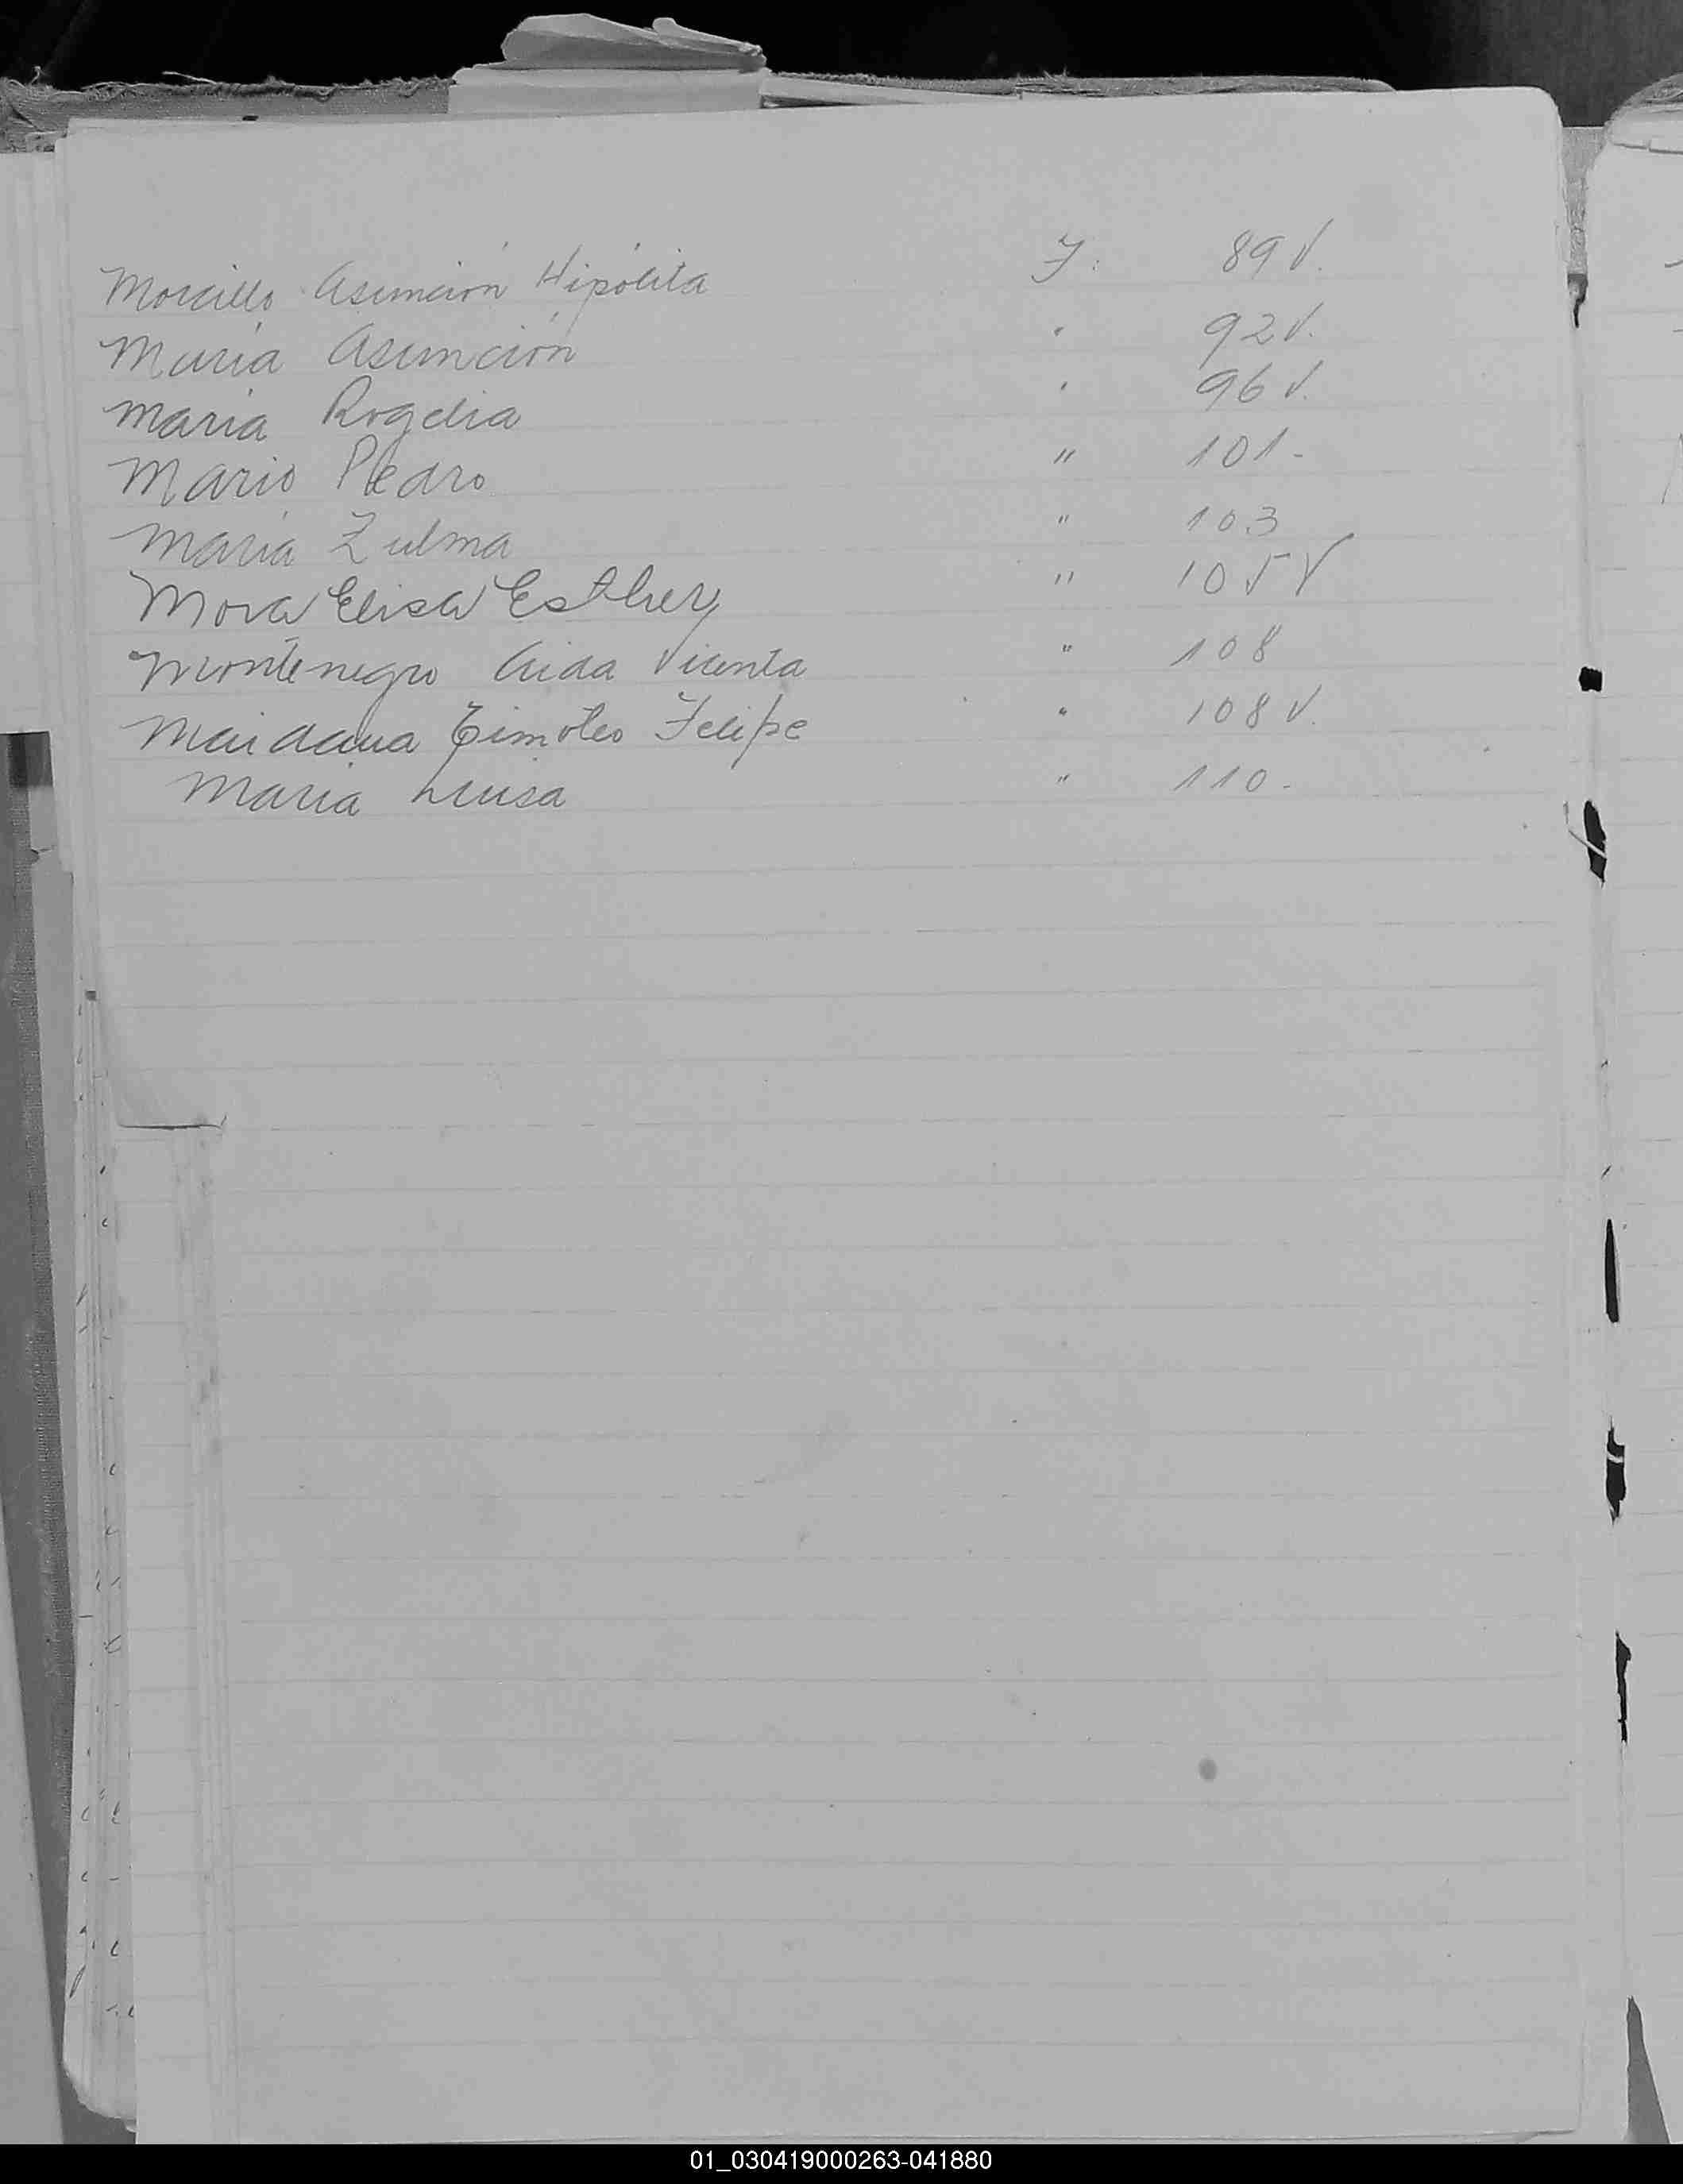 Morcillo Asunción Hipólita F: 89 V.
María Asunción " 92 V.
María Rogelia " 96 V.
Mario Pedro " 101-
María Zulma " 103
Mora Elisa Esther " 105 V
Montenegro Aida Vicenta " 108
Maidana Timoteo Felipe " 108 V.
María Luisa " 110-
01_030419000263-041880